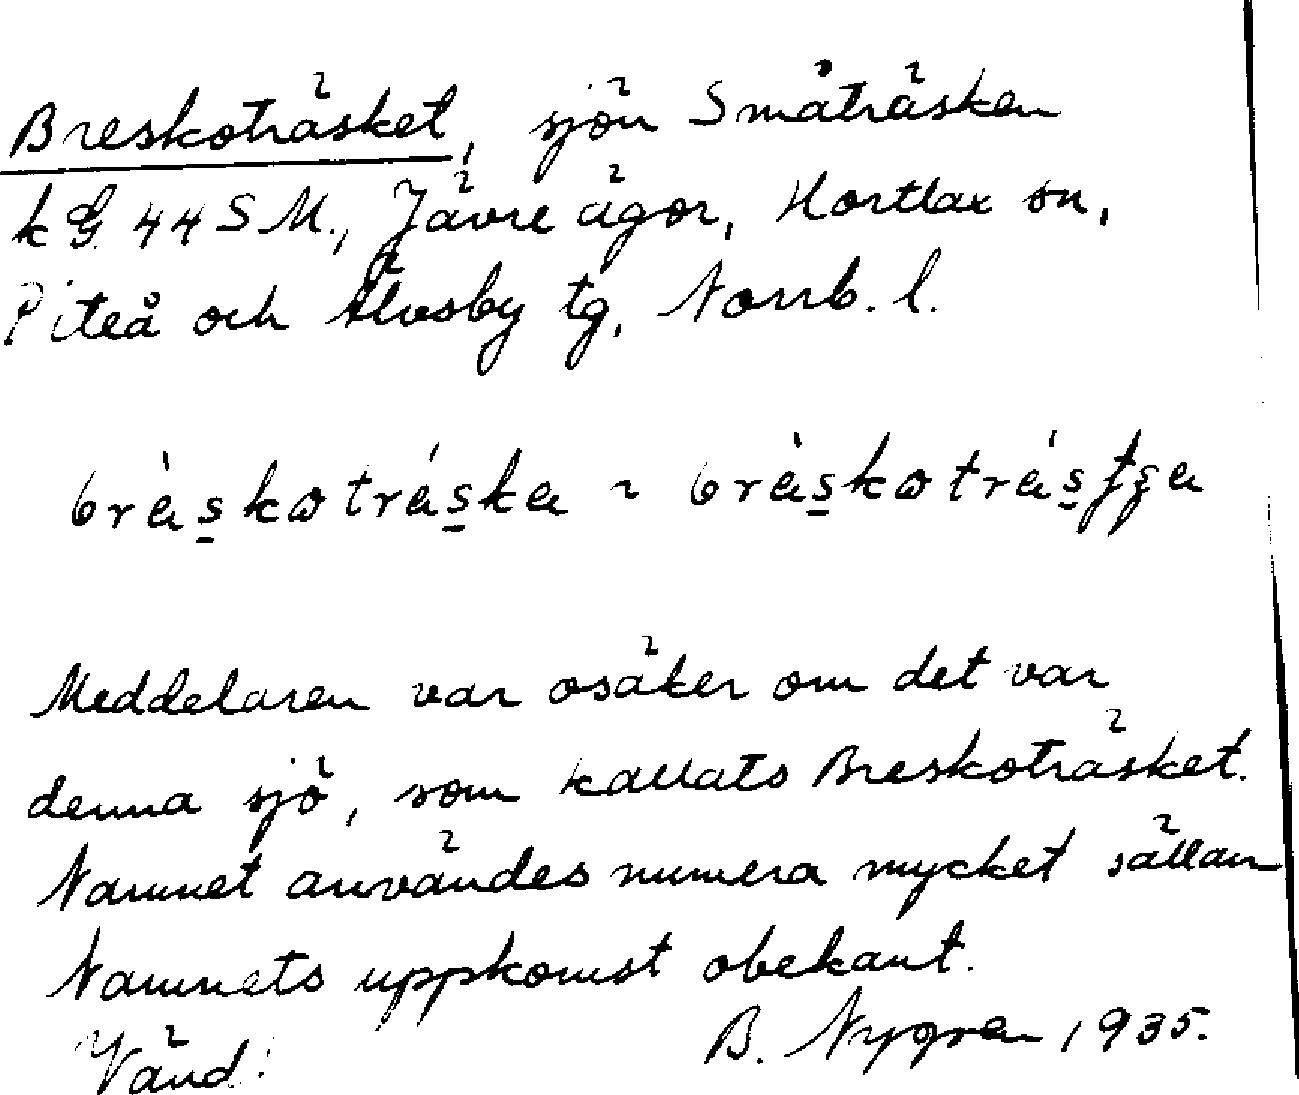 Breskoträsket, sjön Småträsken
kG 44 SM., Jävre ägor, Hortlax sn,
Piteå och Älvsby tg, Norrb. l.
bräskoträska ~ bräskoträ
Meddelaren var osäker om det var
denna sjö, som kallats Breskoträsket.
Namnet användes numera mycket sällan
Namnets uppkomst obekant.
Vänd! B. Nygren 1935.